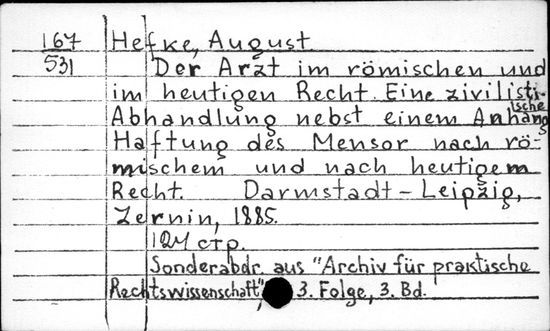 167 Hefke, August
531 Der Arzt im römischen und
im heutigen Recht. Eine zivilisti-
sche
Abhandlung nebst einem Anhang
Haftung des Mensor nach rö-
mischem und nach heutigem
Recht. Darmstadt - Leipzig,
Zernin, 1885.
стр.
Sonderabdr. aus "Archiv für praktische
Rechtswissenschaft", 3. Folge, 3. Bd.